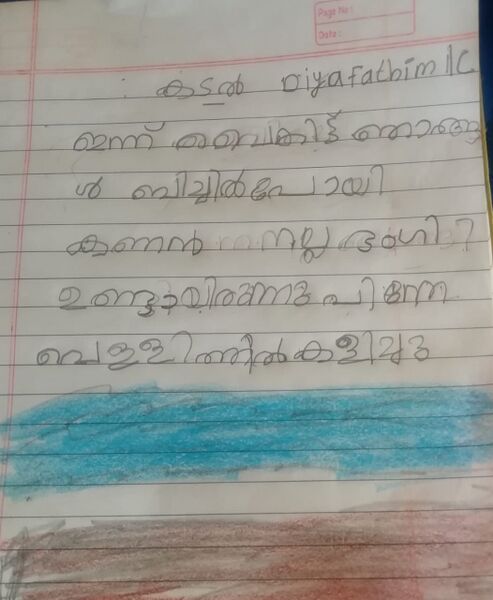 Page No:
Date:
കടൽ Diyafathim 1C
ഇന്ന് വൈകിട്ട് ഞാങ്ങ
ൾ ബിച്ചിൽപോയി
കണൻ നല്ല ഭംഗി
ഉണ്ടായിരുന്നു പിന്നേ
വെള്ളത്തിൽകളിച്ചു